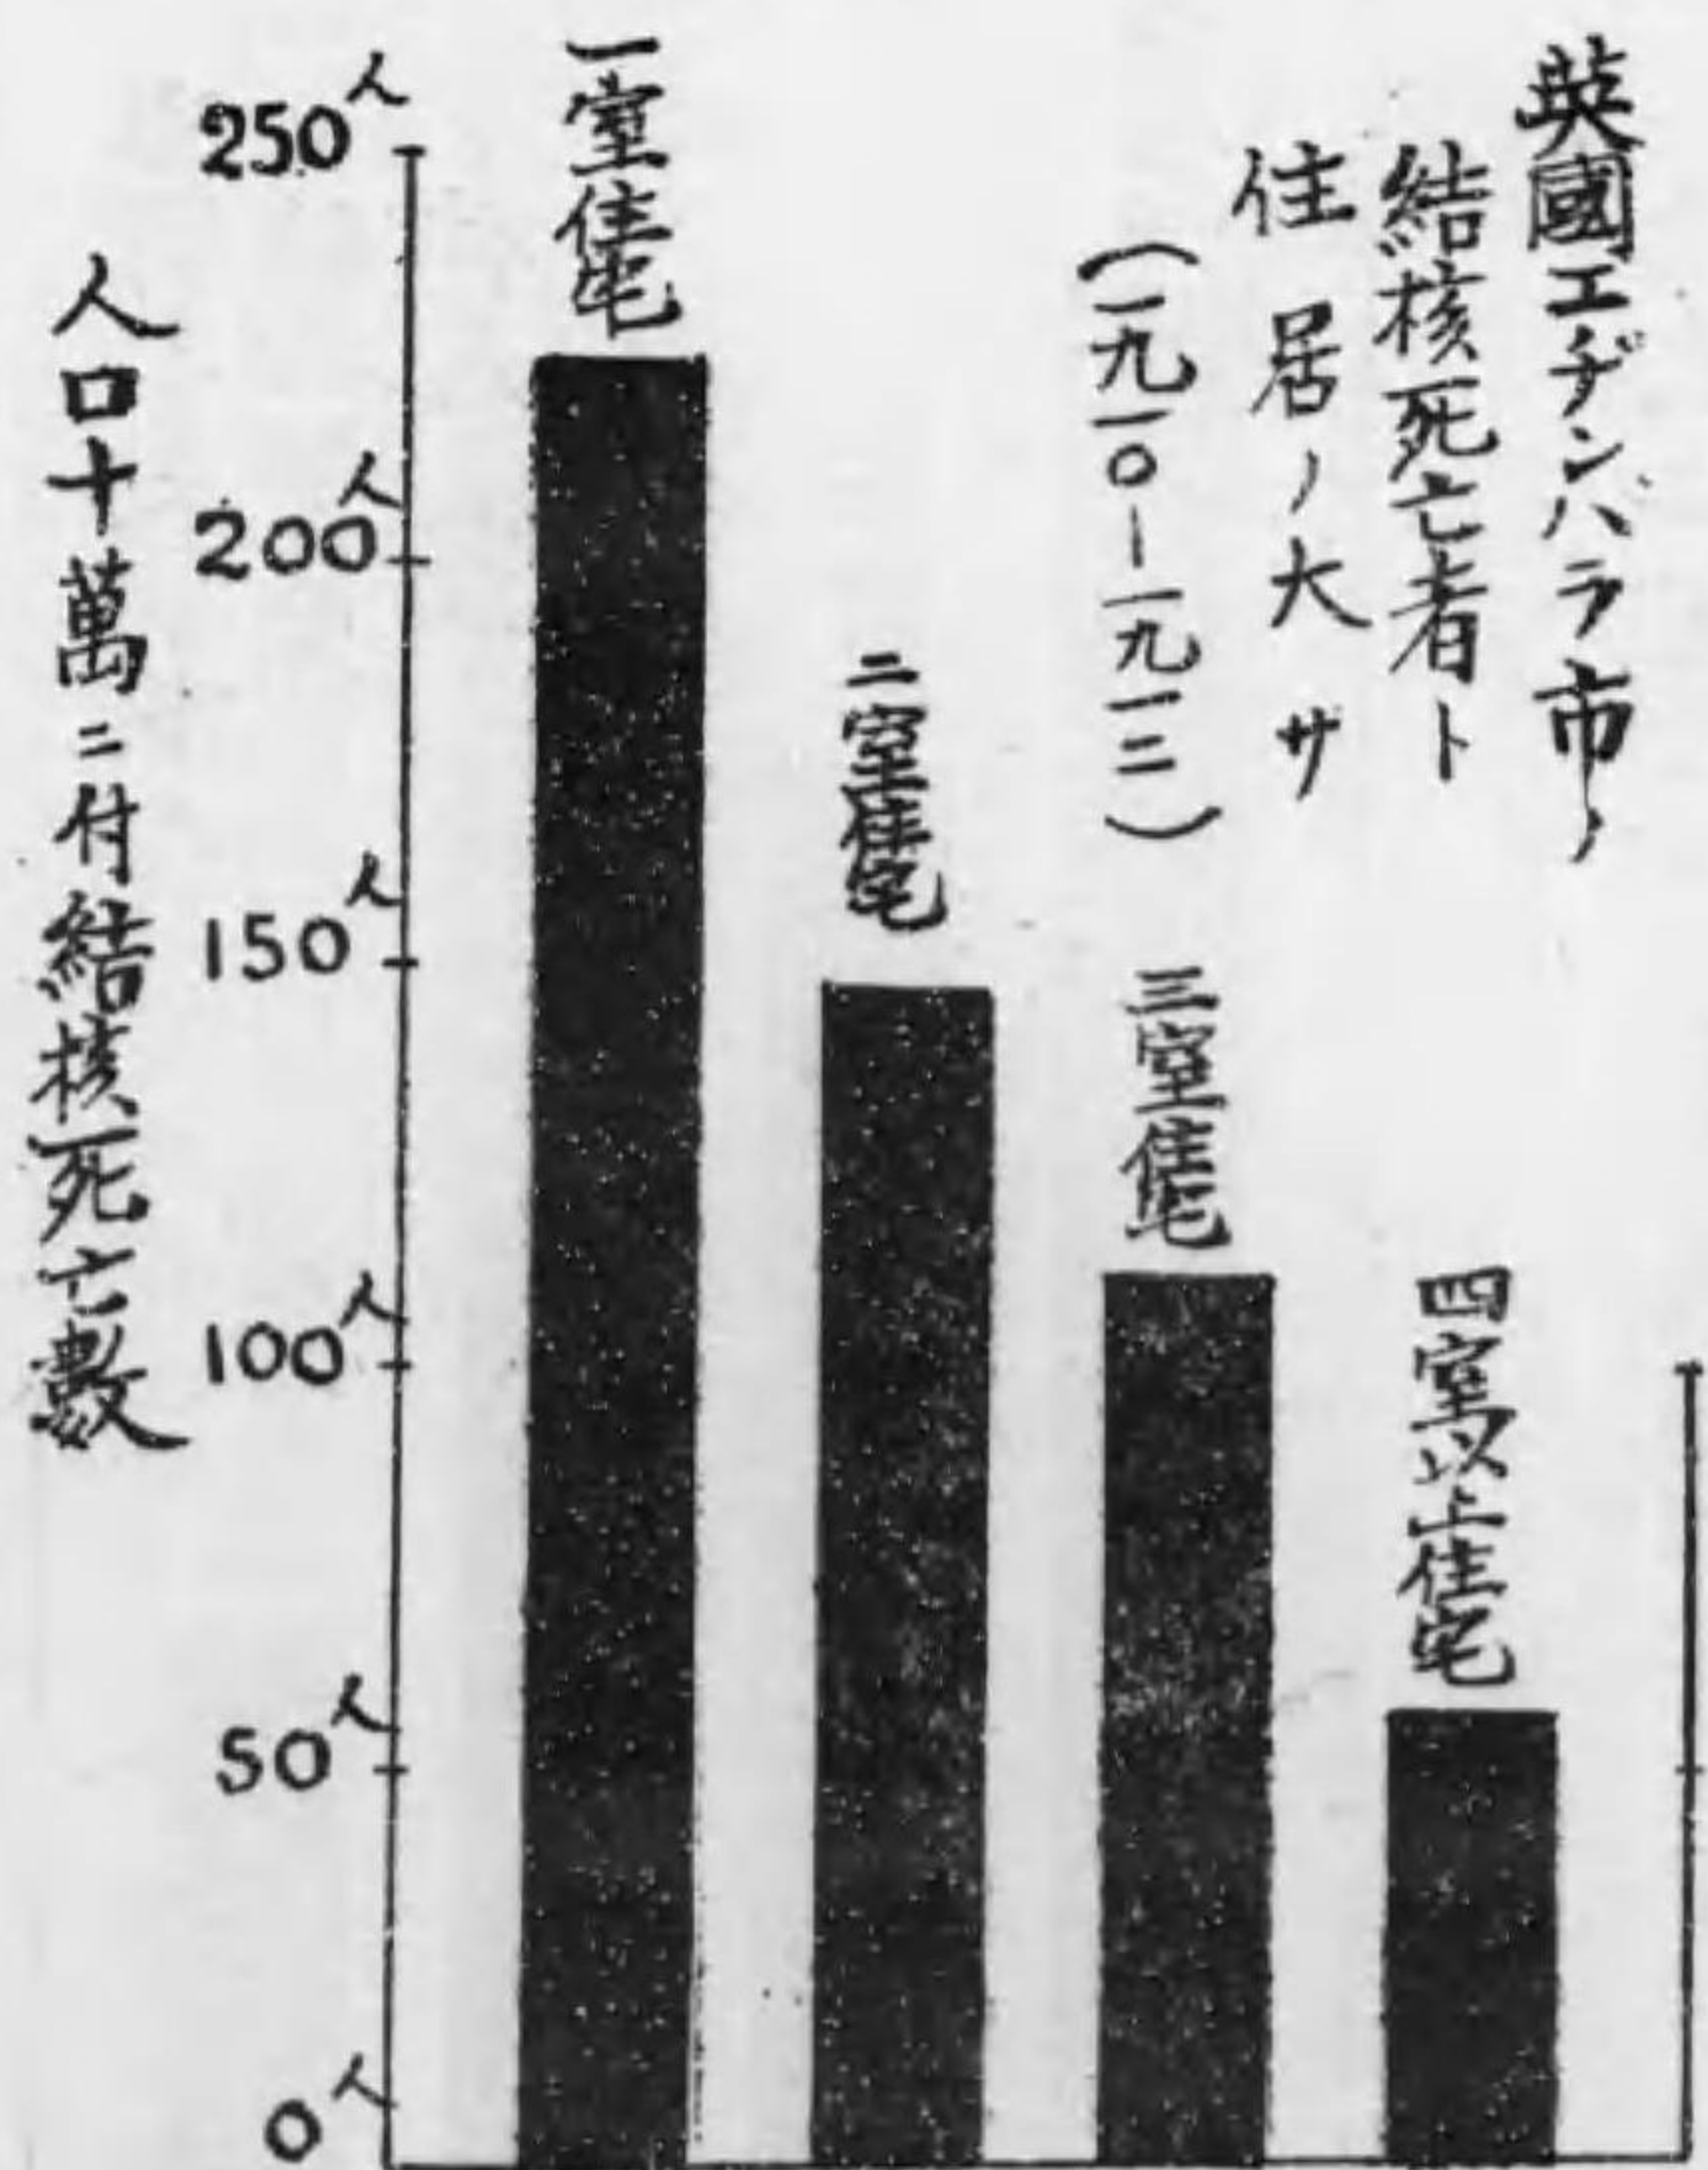 英國エヂンバラ市ノ
結核死亡者ト
住居ノ大サ
(一九一〇-一九一二)
人口十萬ニ付結核死亡數
250人
200人
150人
100人
50人
0人
一室住宅
二室住宅
三室住宅
四室以上住宅